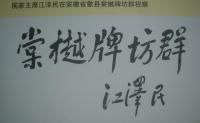 国家主席江泽民在安徽省歙县棠樾牌坊群视察
棠樾牌坊群
江澤民